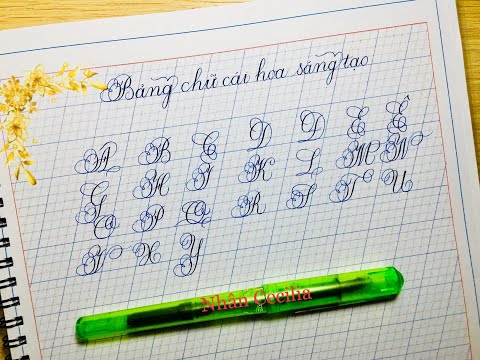 Bảng chữ cái hoa sáng tạo
A B C D D E Ê
G H I K L M N
O P Q R S T U
V X Y
Nhân Cecilia